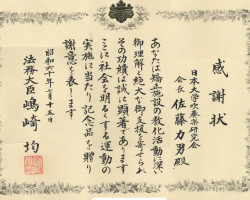 感謝状
日本大学吹奏楽研究会
会長 佐藤力男殿
あなたは矯正施設の教化活動に深い
御理解と絶大な御支援を寄せられ
その功績は誠に顕著であります
ここに社会を明るくする運動の
実施に当たり記念品を贈り
謝意を表します
昭和六十年七月十五日
法務大臣 嶋崎 均